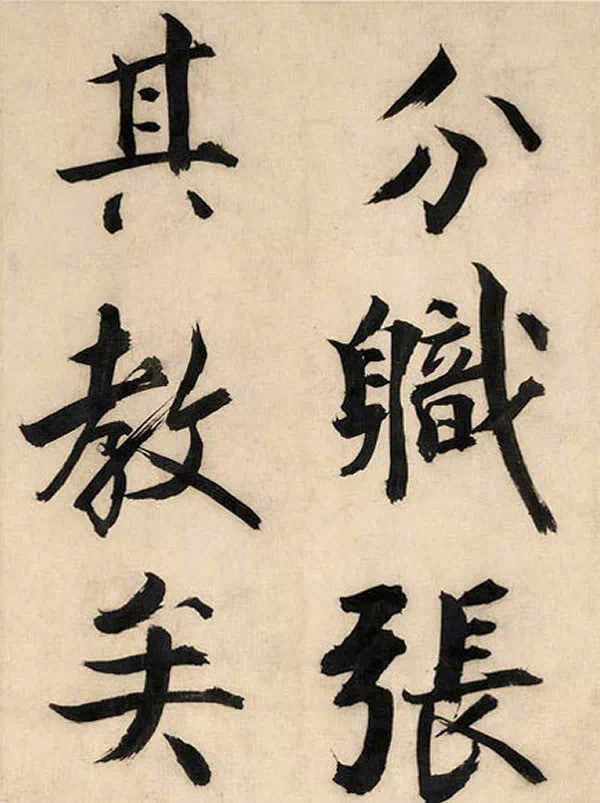 分職張
其教矣